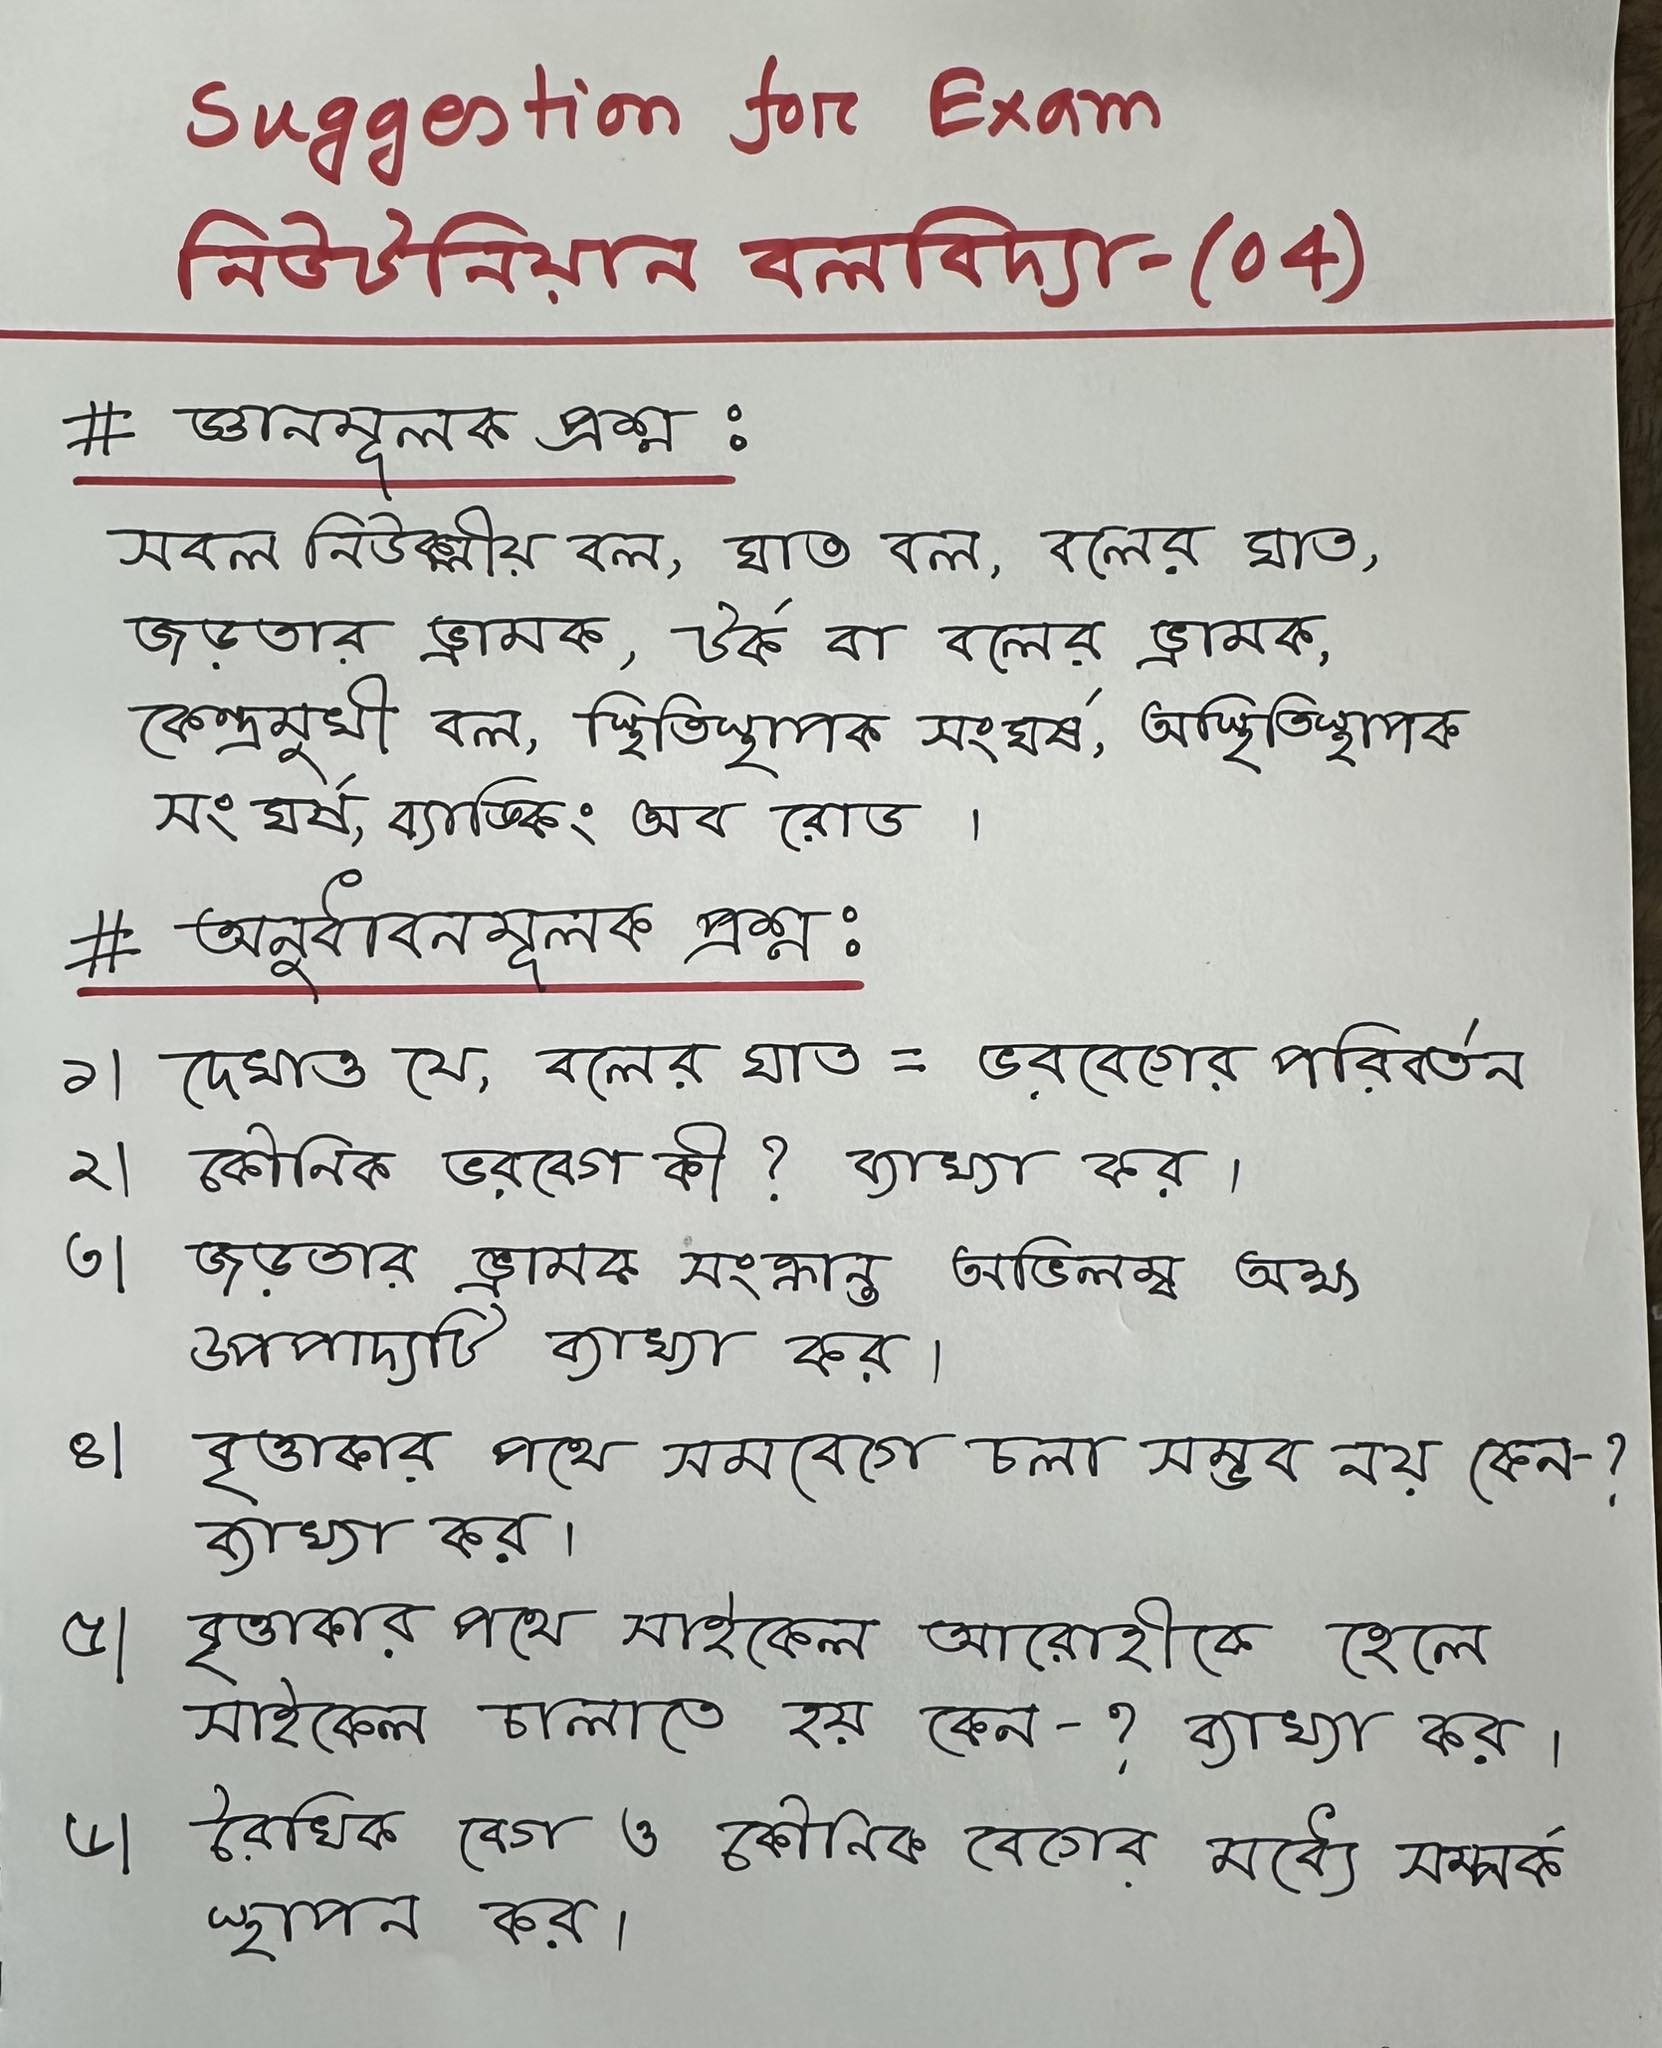 Suggestion for Exam
নিউটনিয়ান বলবিদ্যা-(04)
# জ্ঞানমূলক প্রশ্ন :
সবল নিউক্লীয় বল, ঘাত বল, বলের ঘাত,
জড়তার ভ্রামক, টর্ক বা বলের ভ্রামক,
কেন্দ্রমুখী বল, স্থিতিস্থাপক সংঘর্ষ, অস্থিতিস্থাপক
সংঘর্ষ, ব্যাঙ্কিং অব রোড ।
# অনুধাবনমূলক প্রশ্ন :
১। দেখাও যে, বলের ঘাত = ভরবেগের পরিবর্তন
২। কৌনিক ভরবেগ কী ? ব্যাখ্যা কর ।
৩। জড়তার ভ্রামক সংক্রান্ত অভিলম্ব অক্ষ
উপপাদ্যটি ব্যাখ্যা কর ।
৪। বৃত্তাকার পথে সমবেগে চলা সম্ভব নয় কেন-?
ব্যাখ্যা কর ।
৫। বৃত্তাকার পথে সাইকেল আরোহীকে হেলে
সাইকেল চালাতে হয় কেন-? ব্যাখ্যা কর ।
৬। রৈখিক বেগ ও কৌনিক বেগের মধ্যে সম্পর্ক
স্থাপন কর ।